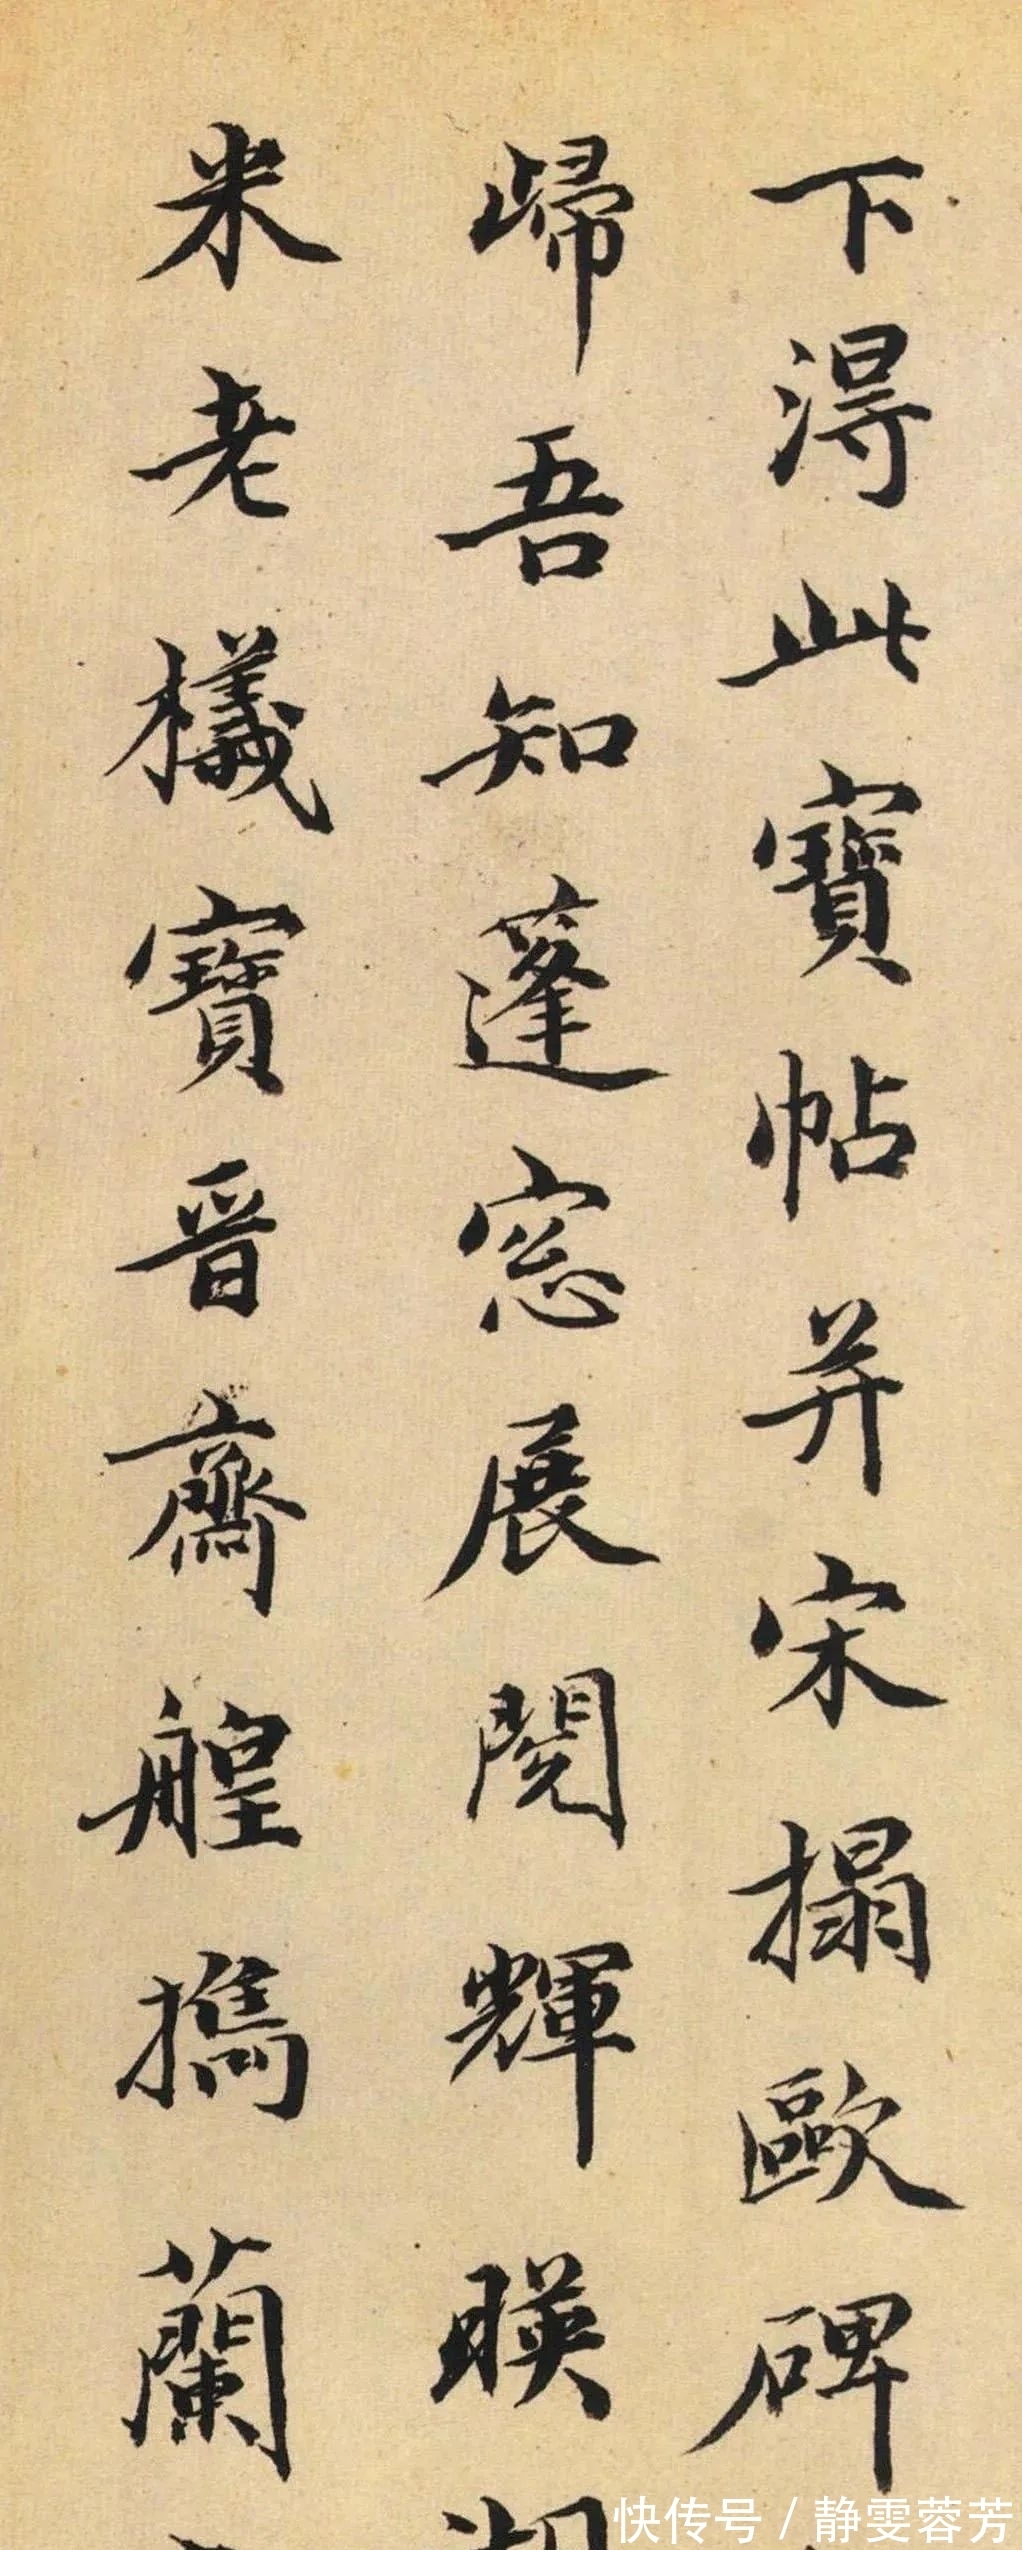 下得此寶帖并宋搨歐碑
歸吾知蓬窓展閱輝暎
米老檥寶晉齋艎擕蘭
快传号 / 静雯蓉芳